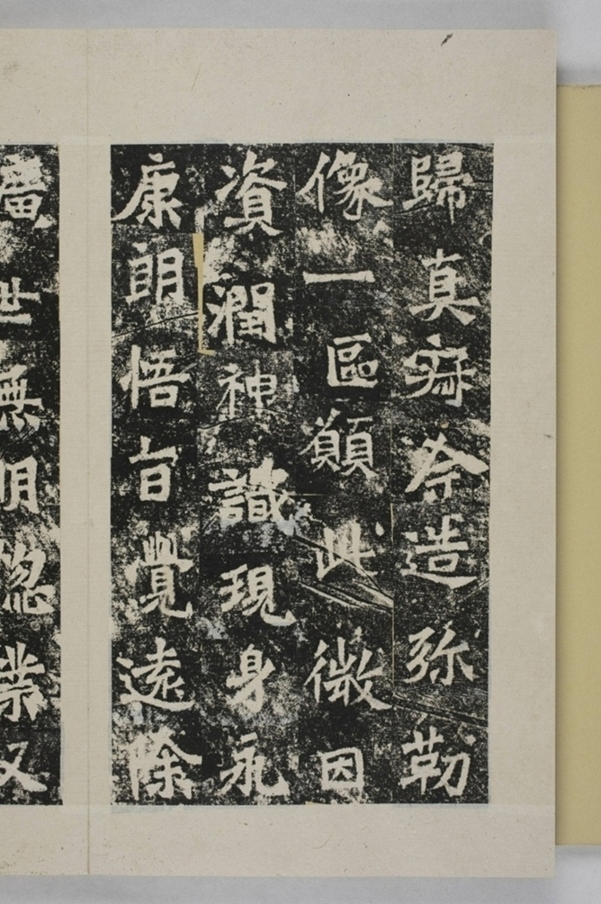 歸真寂造弥勒
像一區願此微因
資潤神識現身永
康朗悟旨覺遠除
世無明惚業又